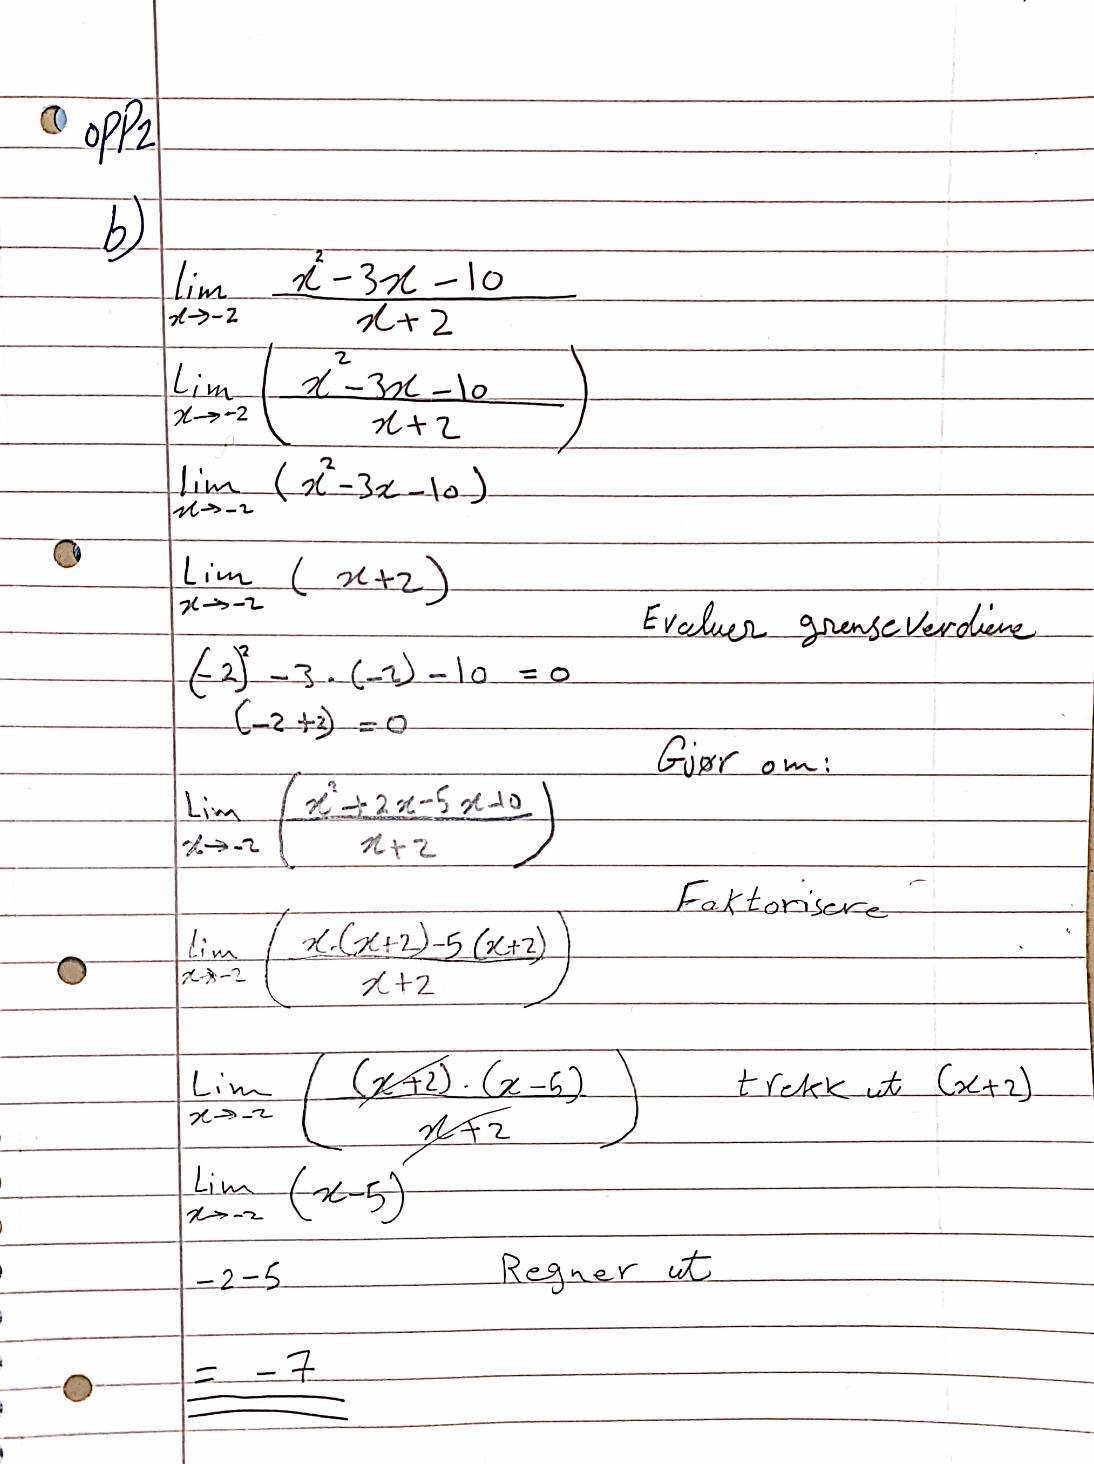 OPP2
b)
lim x→-2 (x² - 3x - 10)/(x + 2)
Lim x→-2 ((x² - 3x - 10)/(x + 2))
lim x→-2 (x² - 3x - 10)
Lim x→-2 (x + 2)
Evaluer grenseverdiene
(-2)² - 3 · (-2) - 10 = 0
(-2 + 2) = 0
Gjør om:
Lim x→-2 ((x² + 2x - 5x - 10)/(x + 2))
Faktorisere
lim x→-2 ((x·(x+2) - 5(x+2))/(x + 2))
Lim x→-2 (((x+2) · (x-5))/(x+2)) trekk ut (x+2)
Lim x→-2 (x-5)
-2-5 Regner ut
= -7